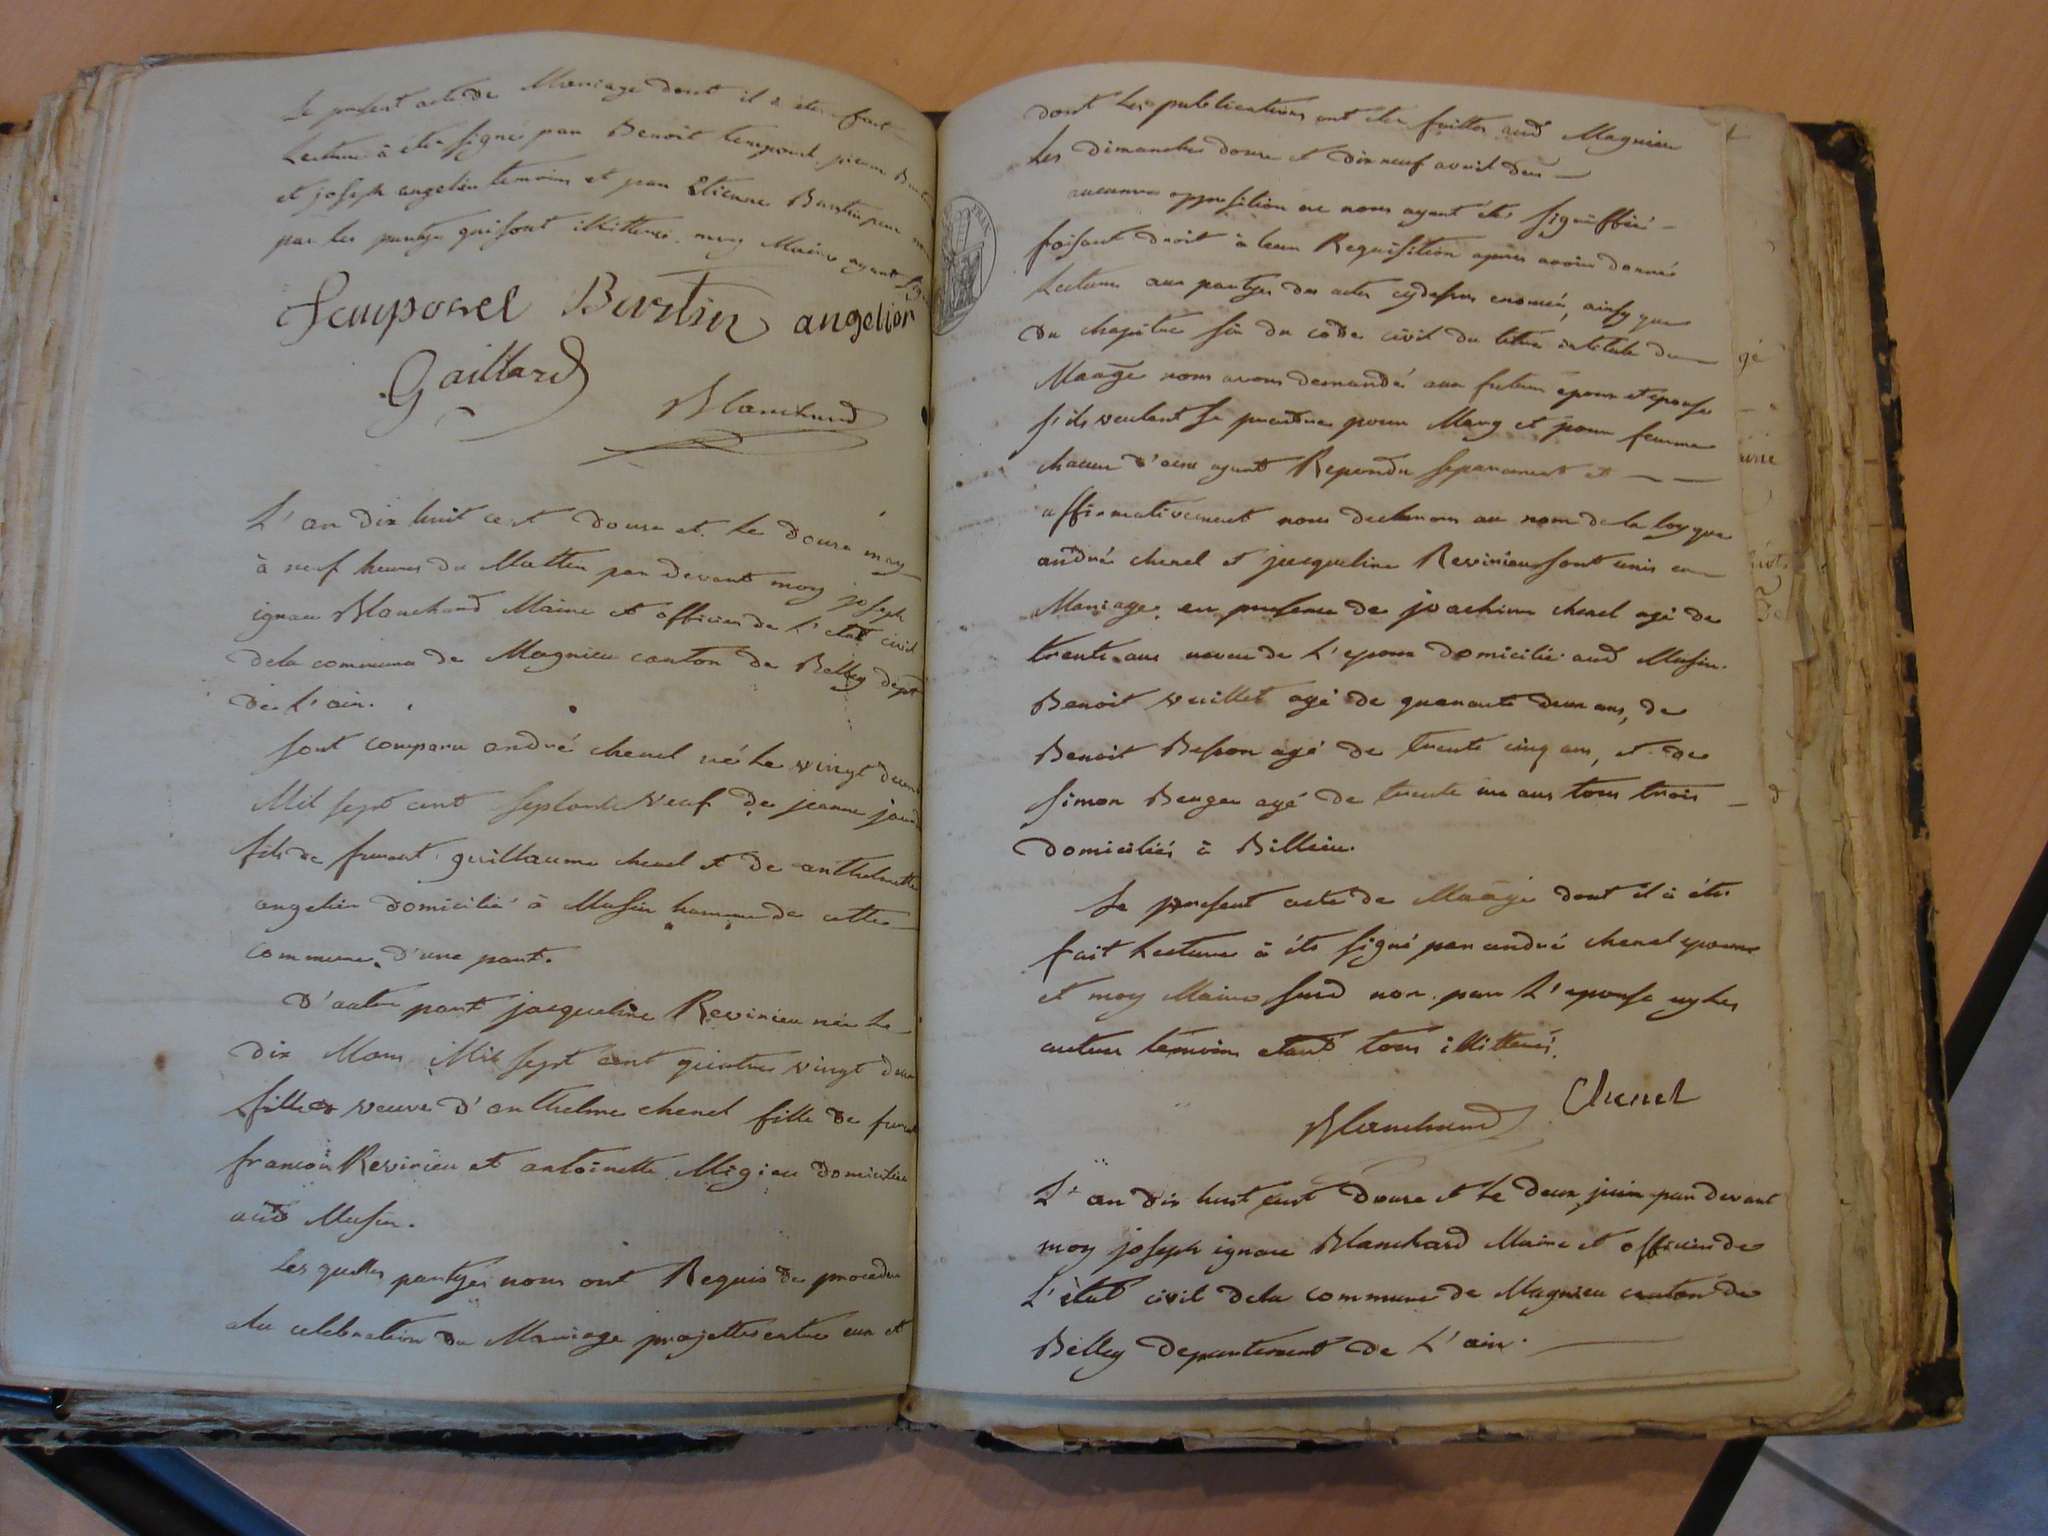 Le present acte de Mariage dont il a eté fait
Lecture à été signé par Benoit temporel pierre Burtin
et joseph angelier temoins et par Etienne Burtin pere
par les partys qui sont illitteré. moy Maire ayant
Temporel Burtin angelier
Gaillard
Blanchard
L'an dix huit cent douse et le douse may
à neuf heures du Mattin par devant moy joseph
ignace Blanchard Maire et officier de L'etat civil
dela commune de Magnieu canton de Belley dept
de L'ain.
sont comparu andré chenel né le vingt deux
Mil sept cent septante veuf de jeanne
fils de furent guillaume chenel et de anthelmette
angelier domicilié à Musin hameau de cette
commune, d'une part.
D'autre part jacqueline Revirieu née le
dix Mars Mil sept cent quatre vingt deux
fille veuve d'anthelme chenel fille de furent
francois Revirieu et antoinette Migieu domiciliée
aud Musin.
Les quelles partyes nous ont Requis de proceder
ala celebration du Mariage projetté entre eux et
dont les publications ont été faittes aud Magnieu
les dimanches douse et dix neuf avril der
aucunes opposition ne nous ayant été signiffiée
faisant droit à leur Requisition apres avoir donné
Lecture aux partyes des actes cydessus enoncés, ainsy que
du chapitre six du code civil du titre intitulé du
Maage nous avons demandé aux futurs epoux et epouse
s'ils veulent se prendre pour Mary et pour femme
chacun d'eux ayant Repondu separement et
affirmativement nous declarons au nom de la loy que
andré chenel et jacqueline Revirieu sont unis en
Mariage. en presence de joachim chenel agé de
trente ans neveu de L'epoux domicilié aud Musin.
Benoit Vuillet agé de quarante deux ans, de
Benoit Besson agé de trente cinq ans, et de
simon Berger agé de trente un ans tous trois
domiciliés à Billieu.
Le present acte de Maage dont il à été
fait Lecture à été signé par andré chenel epoux
et moy Maire susd non par L'epouse ny les
autres temoins etant tous illitterés.
Chenel
Blanchard
L'an dix huit cent douse et le deux juin par devant
moy joseph ignace Blanchard Maire et officier de
L'état civil dela commune de Magnieu canton de
Belley departement de L'ain.